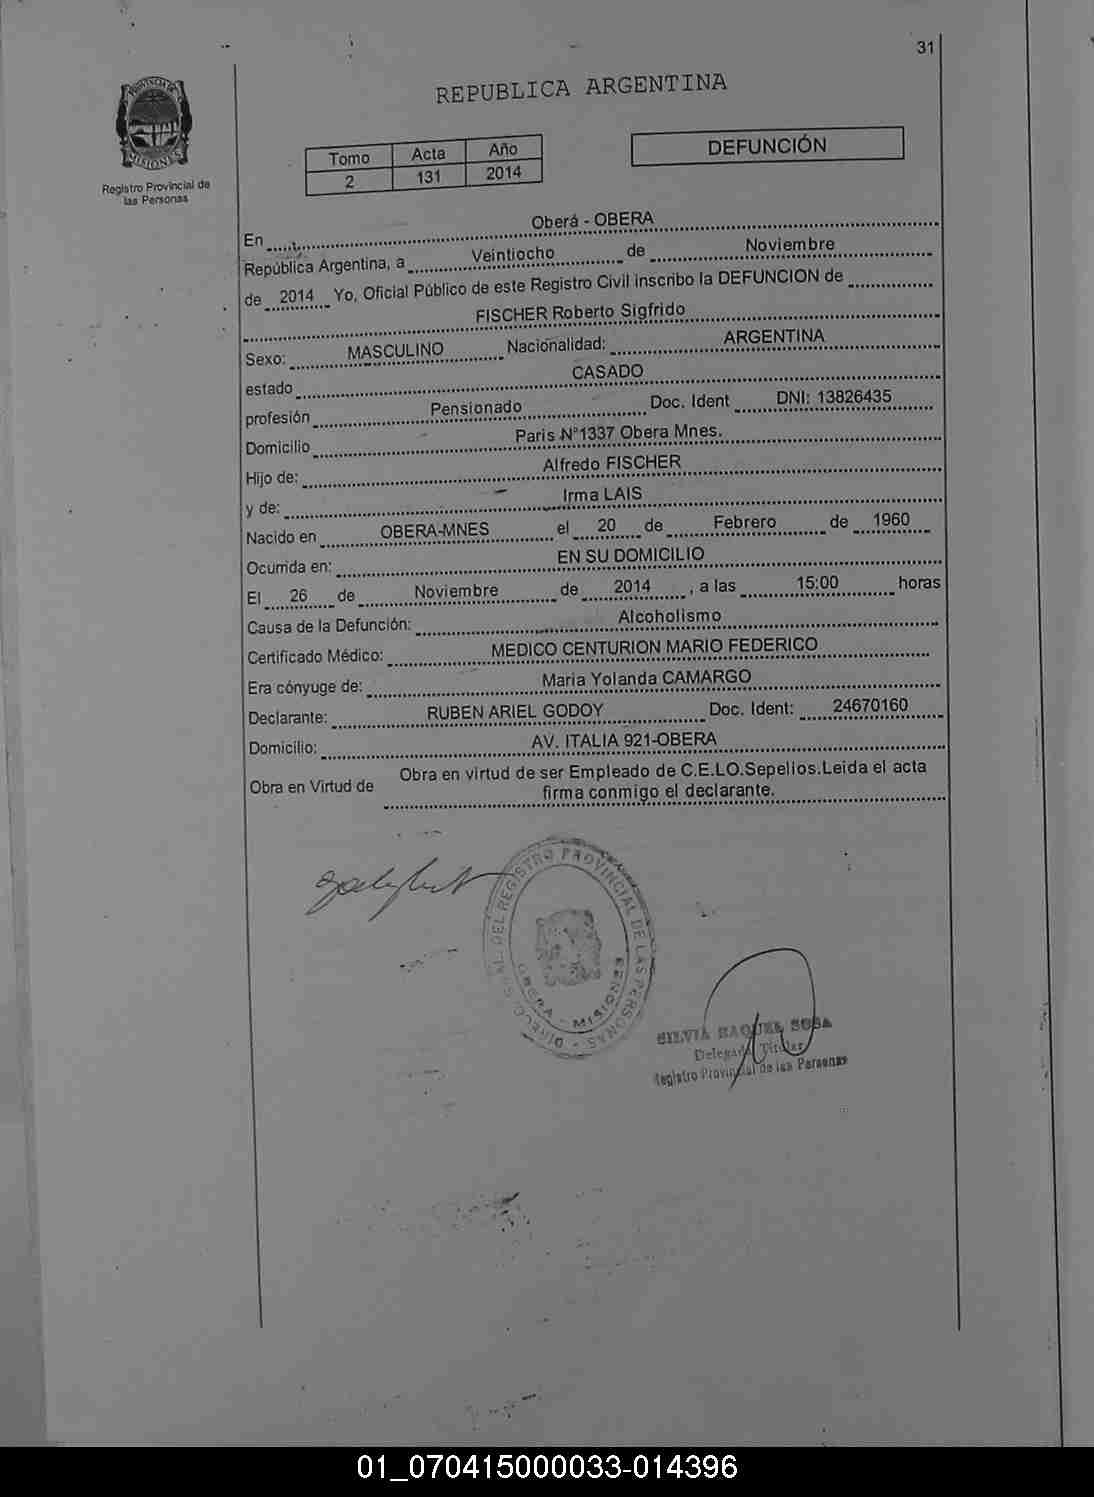 31
PROVINCIA DE
MISIONES
Registro Provincial de
las Personas
REPUBLICA ARGENTINA
Tomo Acta Año
2 131 2014
DEFUNCIÓN
En Oberá - OBERA
República Argentina, a Veintiocho de Noviembre
de 2014 Yo, Oficial Público de este Registro Civil inscribo la DEFUNCION de
FISCHER Roberto Sigfrido
Sexo: MASCULINO Nacionalidad: ARGENTINA
estado CASADO
profesión Pensionado Doc. Ident DNI: 13826435
Domicilio Paris N°1337 Obera Mnes.
Hijo de: Alfredo FISCHER
y de: Irma LAIS
Nacido en OBERA-MNES el 20 de Febrero de 1960
Ocurrida en: EN SU DOMICILIO
El 26 de Noviembre de 2014, a las 15:00 horas
Causa de la Defunción: Alcoholismo
Certificado Médico: MEDICO CENTURION MARIO FEDERICO
Era cónyuge de: Maria Yolanda CAMARGO
Declarante: RUBEN ARIEL GODOY Doc. Ident: 24670160
Domicilio: AV. ITALIA 921-OBERA
Obra en Virtud de Obra en virtud de ser Empleado de C.E.LO.Sepelios.Leida el acta
firma conmigo el declarante.
DIRECC. GRAL. DEL REGISTRO PROVINCIAL DE LAS PERSONAS
OBERA - MISIONES
SILVIA RAQUEL SOSA
Delegada Titular
Registro Provincial de las Personas
01_070415000033-014396